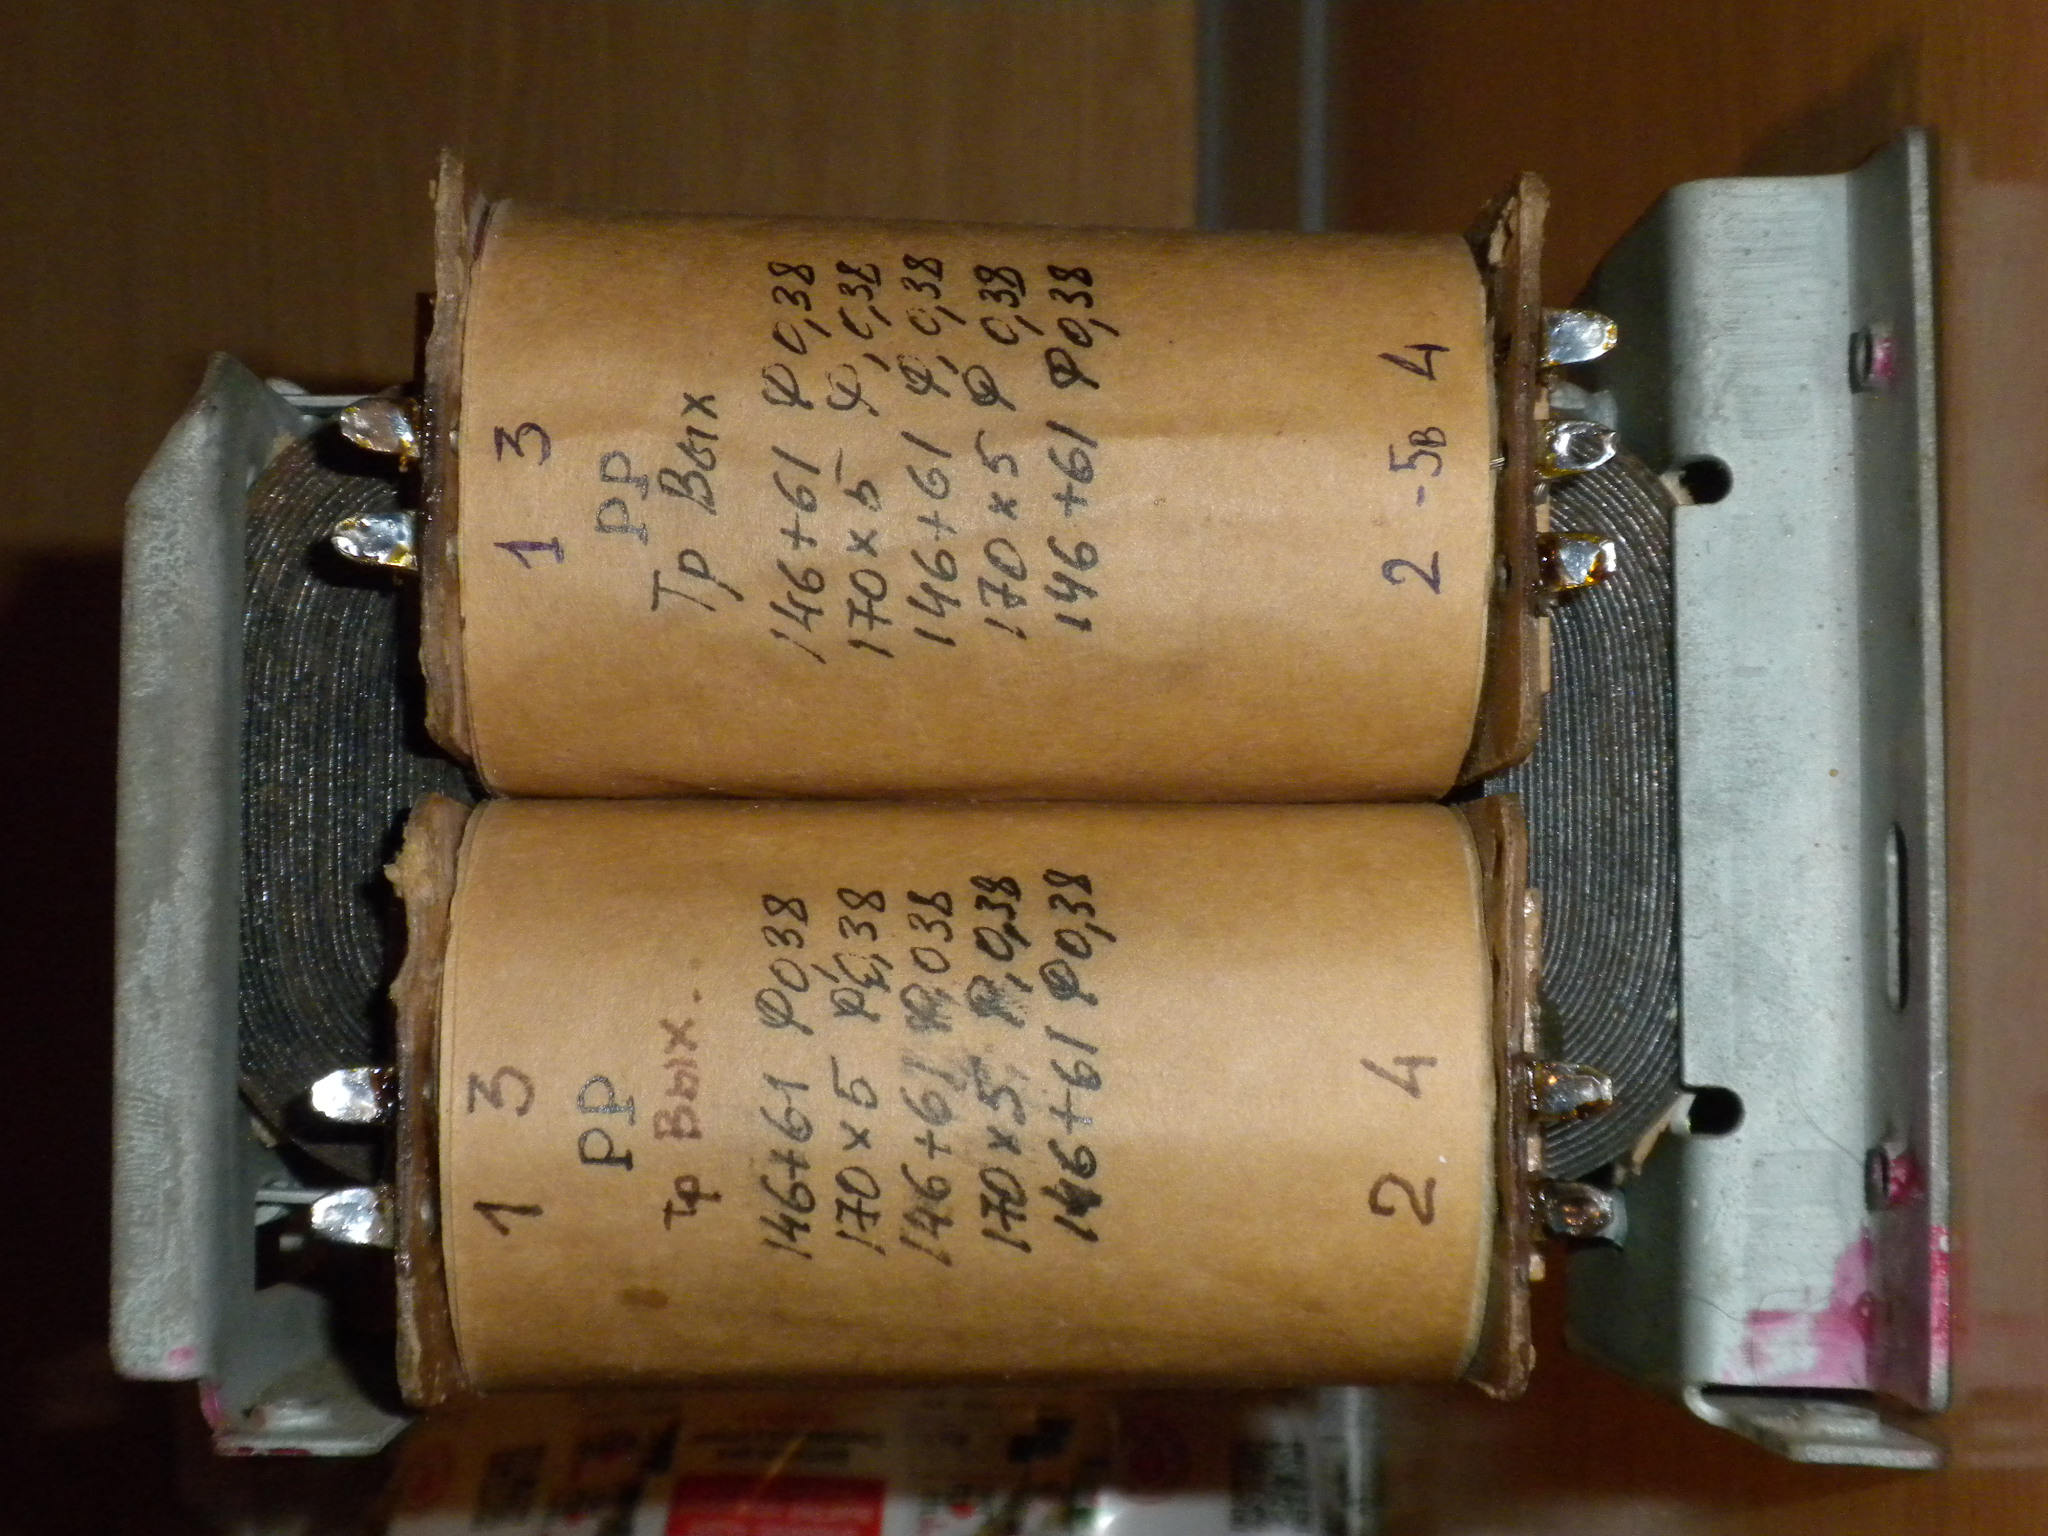 1 3
РР
Тр Вых
146+61 Ф 0,38
170×5 Ф 0,38
146+61 Ф 0,38
170×5 Ф 0,38
146+61 Ф 0,38
2 -5в 4
1 3
РР
Тр Вых.
146+61 Ф 038
170×5 Ф 0,38
146+61 Ф 038
170×5 Ф 0,38
146+61 Ф 0,38
2 4